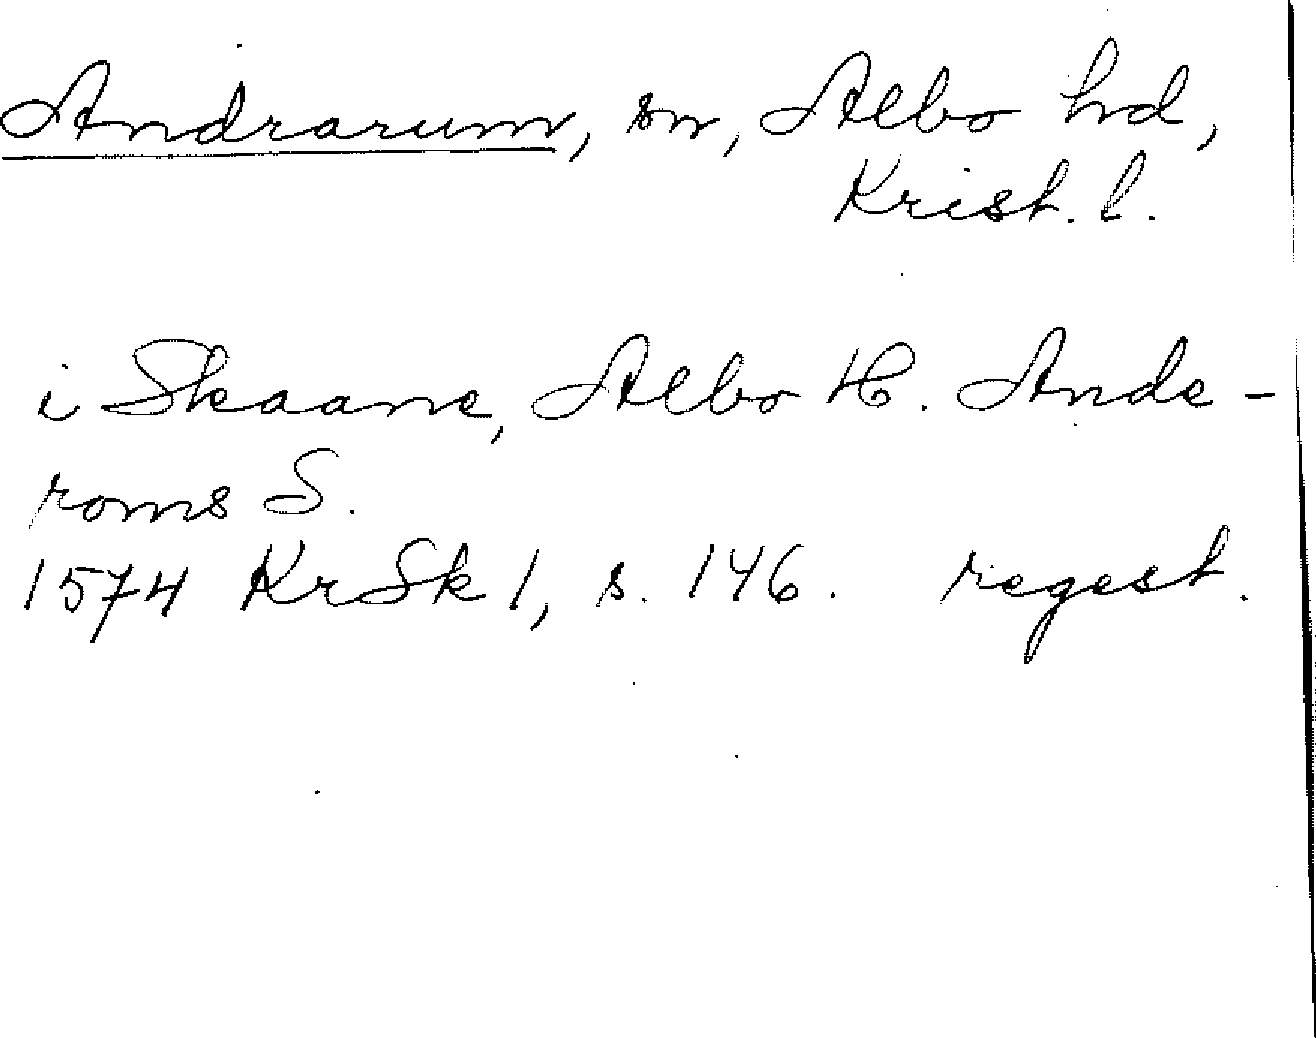 Andrarum, sn, Albo hd,
Krist. l.
i Skaane, Albo H. Ande-
roms S.
1574 KrSk 1, s. 146. regest.